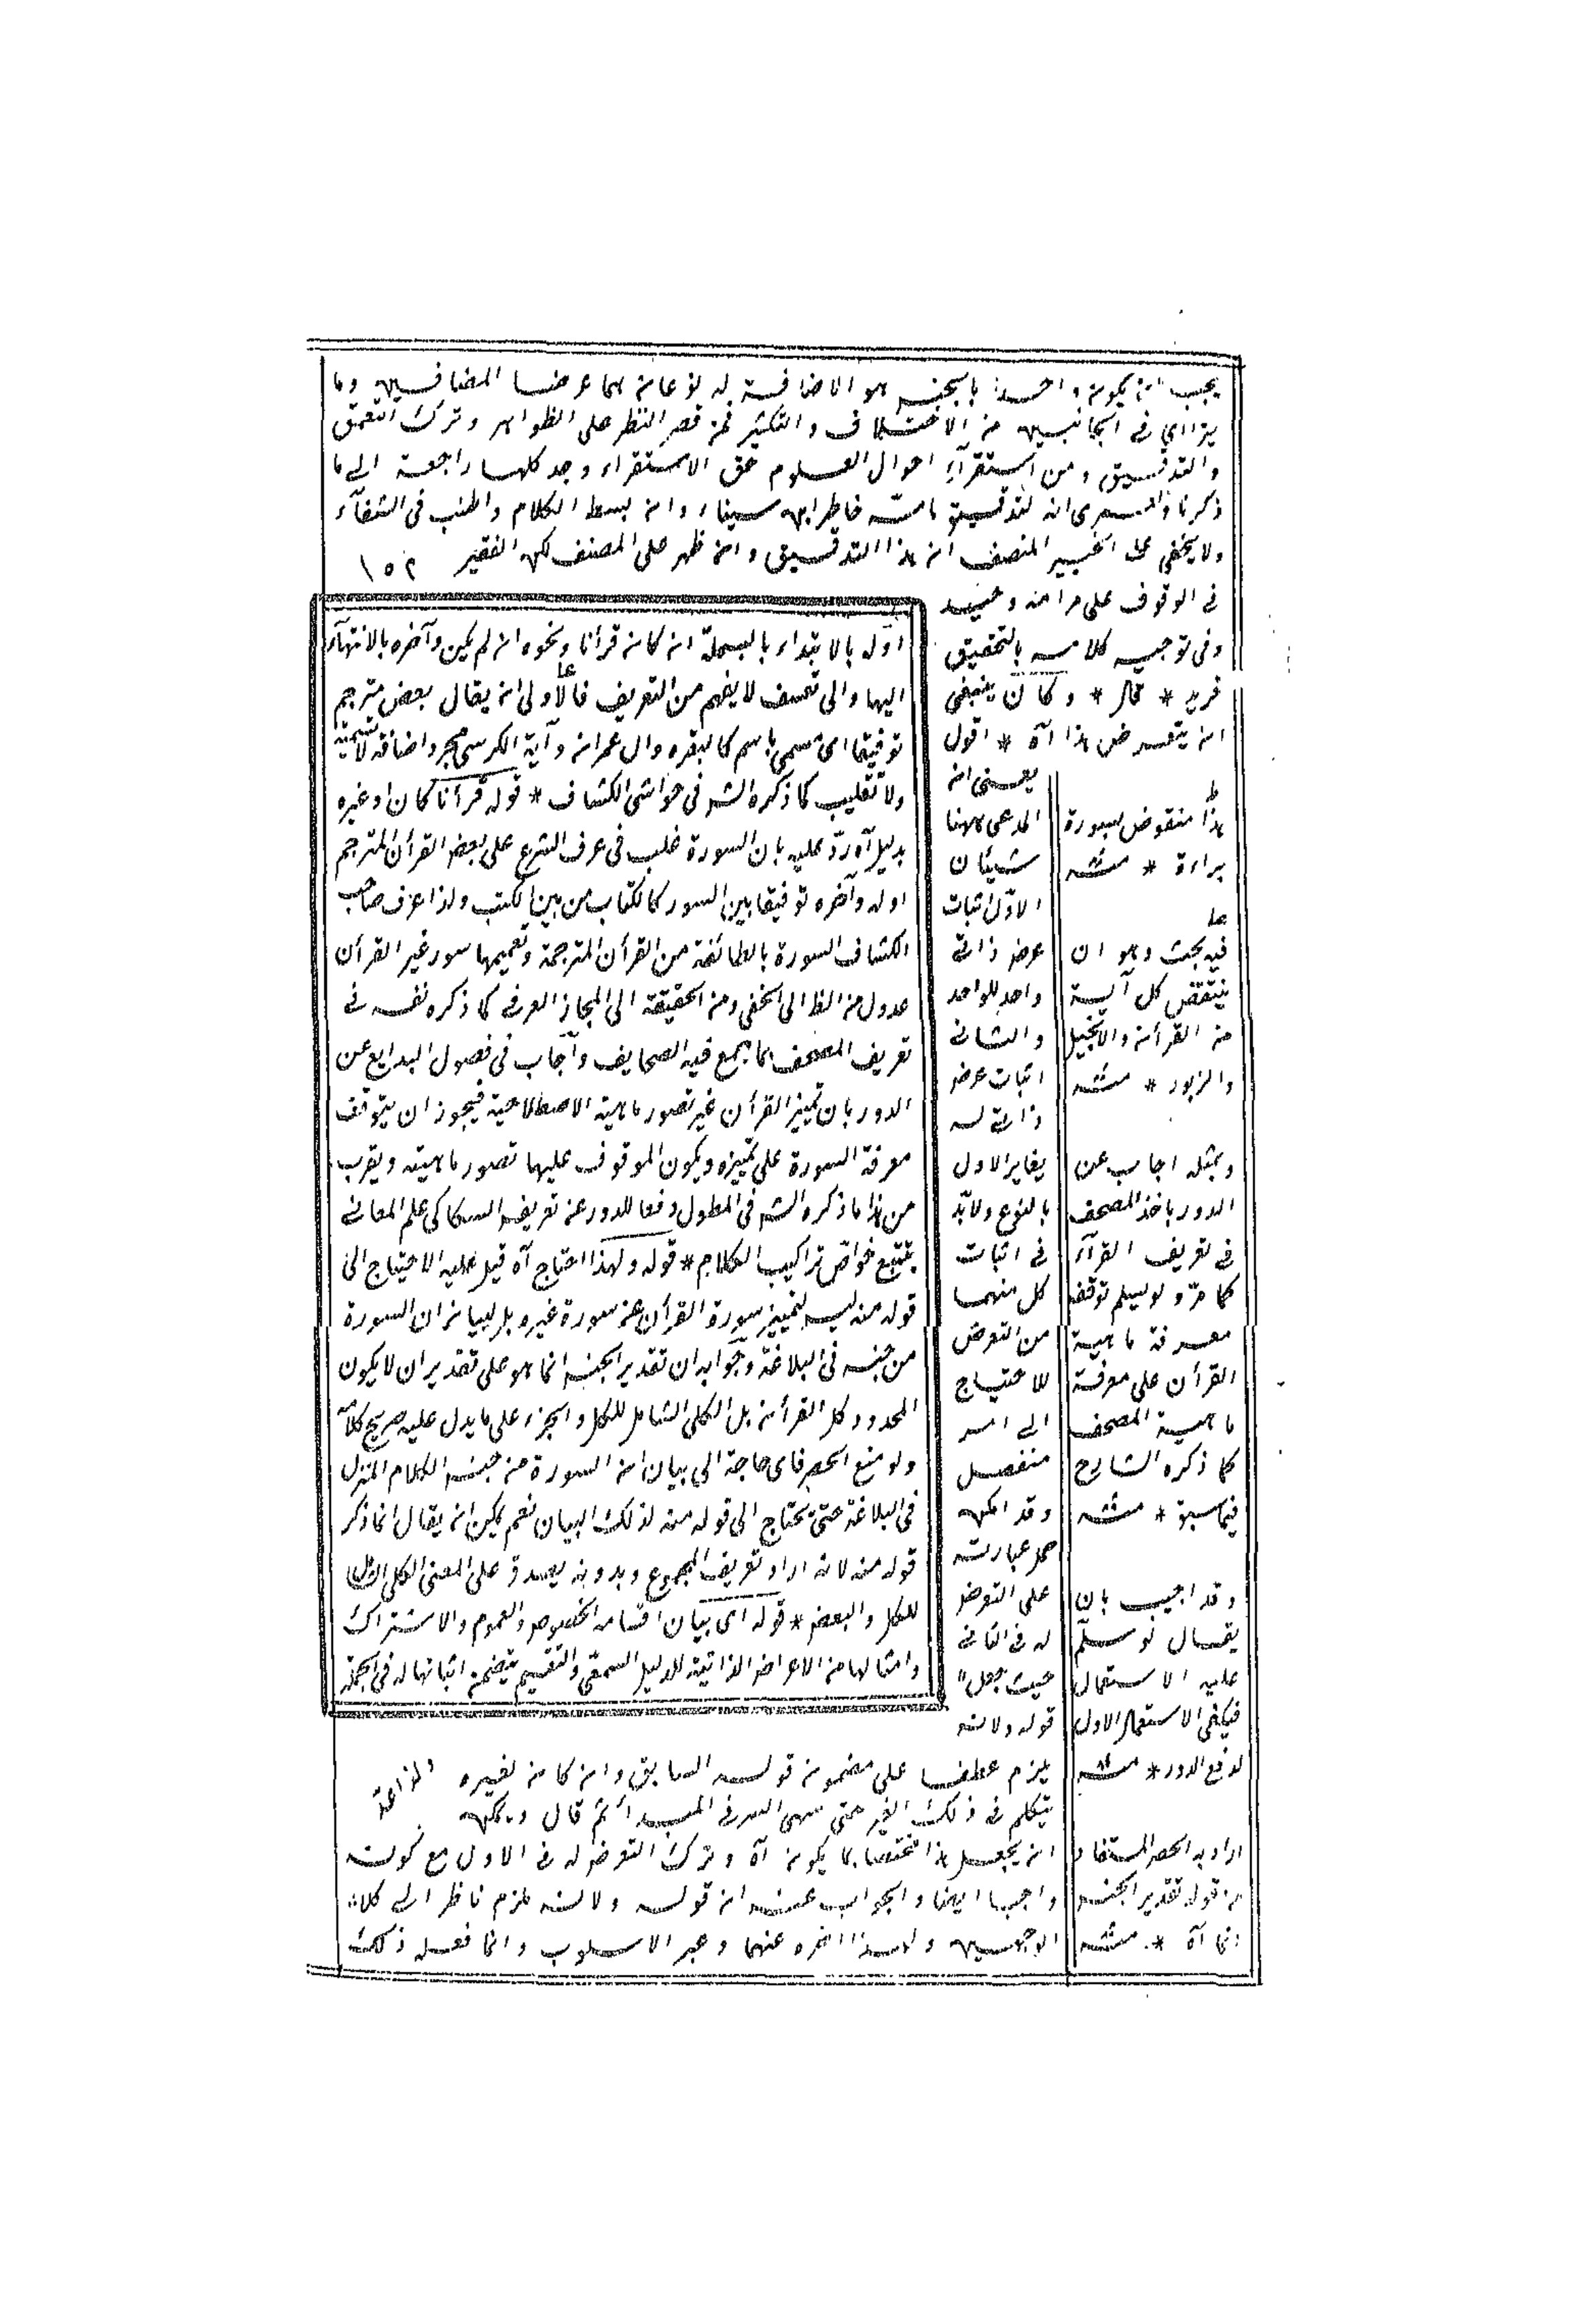 يجب ان يكون واحدا بالجنس هو الاضافة له نوعان هما عرضا المضافين وما
يترااى فى الجانبين من الاختلاف والتكثير فمن قصر النظر على الظواهر وترك التعمق
والتدقيق ومن استقرآء احوال العلوم حق الاستقراء وجد كلها راجعة الى ما
ذكرنا ولعمرى انه لتدقيق مامسّه خاطر ابن سيناء وان بسط الكلام واطنب فى الشفآء
ولا يخفى على الخبير المنصف ان هذا التدقيق وان ظهر على المصنف لكن الفقير
١٥٢
فى الوقوف على مرامه وحيد
وفى توجيه كلامه بالتحقيق
فريد * قال * وكان ينبغى
ان يتعرض هذا آه * اقول
يعنى ان
المدعى ههنا
شيئان
الاوّل اثبات
عرض ذاتى
واحد للواحد
والثانى
اثبات عرض
ذاتى له
يغاير الاول
بالنوع ولابدّ
فى اثبات
كل منهما
من التعرض
للاحتياج
الى امر
منفصل
وقد امكن
حمل عبارته
على التعرض
له فى الثانى
حيث جعل
قوله ولانه
يلزم عطفا على مضمون قوله السابق وان كان لغيره
يتكلم فى ذلك الغير حتى ينتهى الى المبدأ ثم قال ويمكن
ان يجعل هذا مختصا بما يكون آه وترك التعرض له فى الاول مع كونه
واجبا ايضا والجواب عنه ان قوله ولانه يلزم ناظر الى كلا
الوجهين ولهذا اخره عنهما وغير الاسلوب وانما فعله ذلك
اوّله بالابتداء بالبسملة ان كان قرأنا ونحوه ان لم يكن وآخره بالانتهآء
اليها والى تعسف لا يفهم من التعريف فالاولى ان يقال بعض مترجم
توفيقا اى مسمى باسم كالبقره وال عمران وآية الكرسى مجرد اضافة لا تسمية
ولا تغليب كما ذكره الشـ فى حواشى الكشاف * قوله قرأنا كان او غيره
بدليل آه ردّ عليه بان السورة غلب فى عرف الشرع على بعض القرأن المترجم
اوله وآخره توفيقا بين السور كالكتاب من بين الكتب ولذا عرف صاحب
الكشاف السورة بالطائفة من القرأن المترجمة وتعميمها سور غير القرأن
عدول من الظـ الى الخفى ومن الحقيقة الى المجاز العرفى كما ذكره نفسه فى
تعريف المصحف بما جمع فيه الصحايف وآجاب فى فصول البدايع عن
الدور بان تمييز القرأن غير تصور ماهيته الاصطلاحية فيجوز ان يتوقف
معرفة السورة على تمييزه ويكون الموقوف عليها تصور ماهيته ويقرب
من هذا ما ذكره الشـ فى المطول دفعا للدور عن تعريف السكاكى علم المعانى
بتتبع خواصّ تراكيب الكلام * قوله ولهذا احتاج آه قيل عليه الاحتياج الى
قوله منه ليس لتمييز سورة القرأن عن سورة غيره بل لبيان ان السورة
من جنسه فى البلاغة وجوابه ان تقدير الجنس انما هو على تقدير ان لا يكون
المحدود كل القرأن بل الكلى الشامل للكل والجزء على ما يدل عليه صريح كلامه
ولو منع الحصر فاى حاجة الى بيان ان السورة من جنس الكلام المنزل
فى البلاغة حتى يحتاج الى قوله منه لذلك البيان نعم يمكن ان يقال انما ذكر
قوله منه لانه اراد تعريف المجموع وبدونه يصدق على المعنى الكلى الشامل
للكل والبعض * قوله اى بيان اقسامه الخصوص والعموم والاشتراك
وامثالها من الاعراض الذاتية للدليل السمعى والتقسيم يتضمن اثباتها له فى الجملة
هذا منقوض بسورة
براءة * منه
فيه بحث وهو ان
ينتقض كل آية
من القرأن والانجيل
والزبور * منه
وبمثله اجاب عن
الدور باخذ المصحف
فى تعريف القرآن
كما مرّ ولو سلم توقف
معرفة ماهية
القرأن على معرفة
ماهية المصحف
كما ذكره الشارح
فيما سبق * منه
وقد اجيب بان
يقال لو سلّم
عليه الاستعمال
فيكفى الاستعمال الاول
لدفع الدور * منه
اراد به الحصر المستفاد
من قوله تقدير الجنس
انما آه * منه